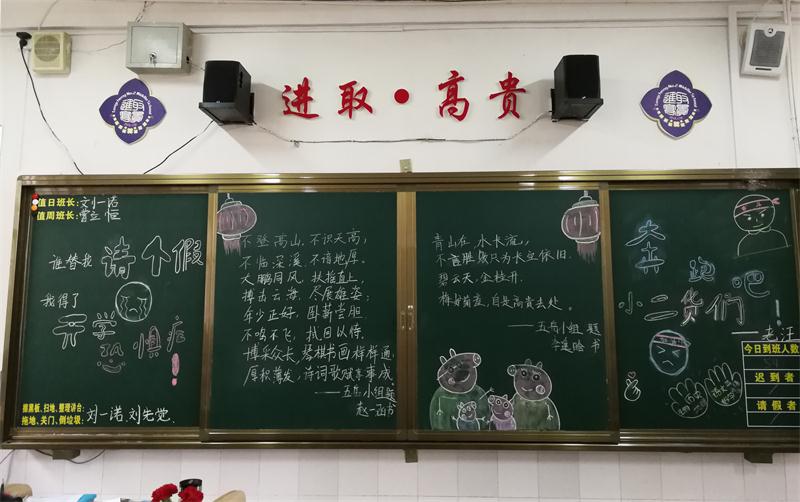 进取·高贵
值日班长: 刘一诺
值周班长: 曾立恒
谁替我请个假
我得了
开学恐惧症
擦黑板、扫地、整理讲台:
拖地、关门、倒垃圾:
刘一诺、刘先觉
不登高山,不识天高;
不临深溪,不谙地厚。
大鹏同风,扶摇直上,
搏击云海,尽展雄姿;
年少正好,图薪尝胆
不鸣不飞,执目以待。
博采众长,琴棋书画样样通,
厚积薄发,诗词歌赋享事成。
——五岳小组题
赵一函书
青山在,水长流,
不言胜败只为长空依旧.
碧云天,金枝开.
梅如菊意,自是高贵去处.
——五岳小组题
李遥晗 书
大步跑吧
小二货们!
——老汪
今日到班人数
迟到者
请假者